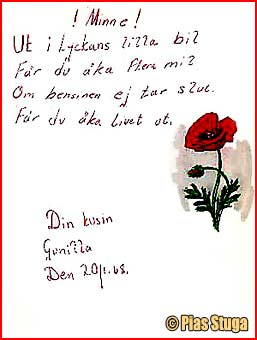 ! Minne !
Ut i Lyckans lilla bil
Får du åka flera mil
Om bensinen ej tar slut.
Får du åka livet ut.
Din kusin
Gunilla
Den 20/1.68.
© Pias Stuga